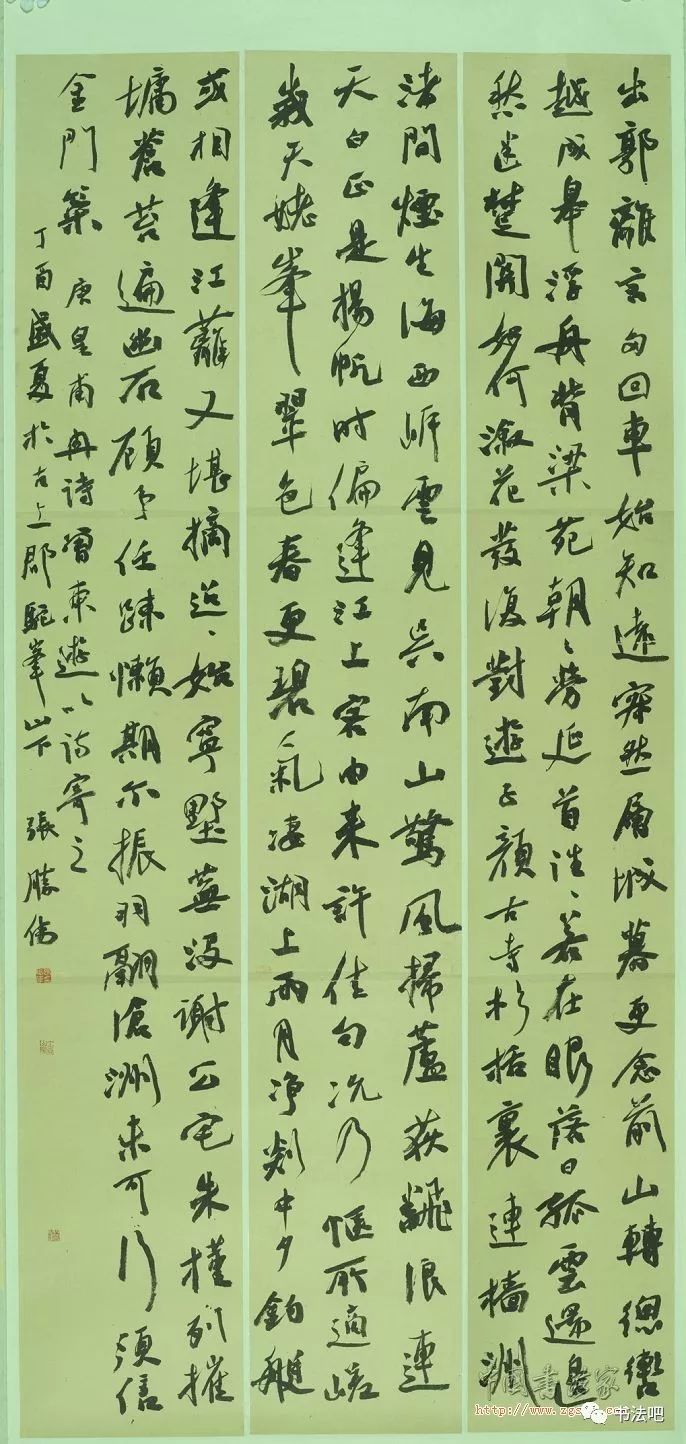 出郭離言多回車始知遠寂然層城暮更念前山轉總轡
越成皋浮舟背梁苑朝〻勞延首往〻若在眼落日孤雲還邊
愁迷楚關如何溆花發復對遊子顏古寺杉栝裏連檣洲
渚間煙生海西岸雲見吳南山驚風掃蘆荻翻浪連
天白正是楊帆時偏逢江上客由來許佳句況乃愜所適嵯
峩天姥峯翠色春更碧氣淒湖上雨月净剡中夕釣艇
或相逢江蘺又堪摘迢〻始寧墅蕪没謝公宅朱槿列摧
墉蒼苔遍幽石顧予任疎懶期尔振羽翮滄洲未可行須信
金門策 唐皇甫冉詩曾東遊以詩寄之
丁酉盛夏於古上郡駝峯山下 張勝偉
中國書法家
http://www.zgs
书法吧